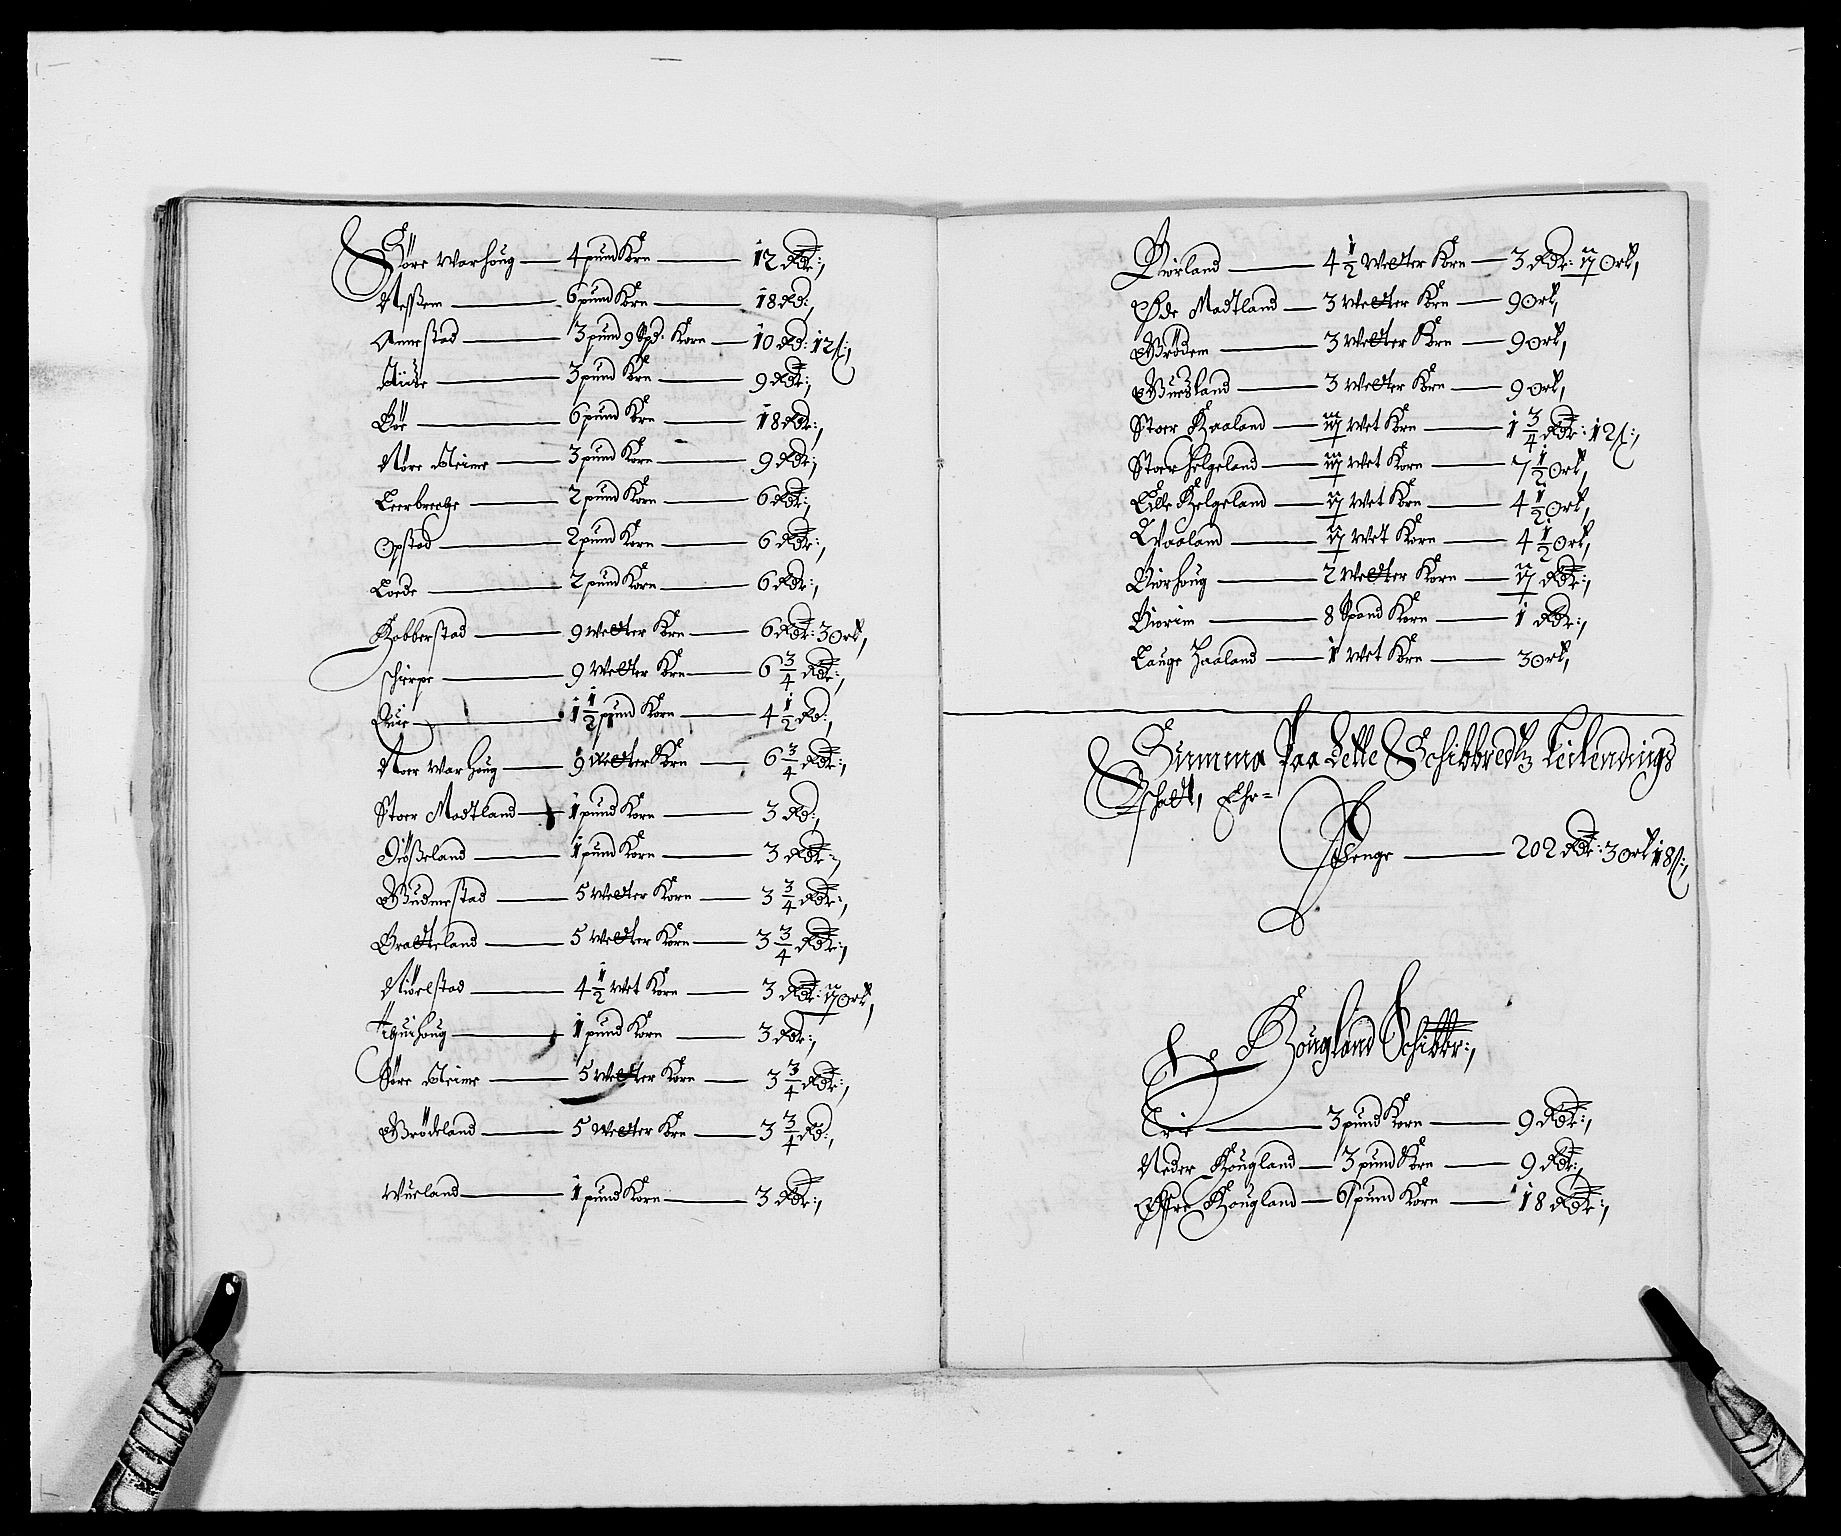 Söre Warhoug — 4 pund Korn — 12 Rdr:,
Nessem — 6 pund Korn — 18 Rd:,
Annestad — 3 pund 9 Spd. Korn — 10 Rd: 12 ß:,
— 3 pund Korn — 9 Rdr:,
Böe — 6 pund Korn — 18 Rdr:,
Nöre Bleime — 3 pund Korn — 9 Rdr:,
Leerbrechе — 2 pund Korn — 6 Rdr:,
Opstad — 2 pund Korn — 6 Rdr:,
Loede — 2 pund Korn — 6 Rdr:,
Kobberstad — 9 Wetter Korn — 6 Rdr: 3 Ort,
Schierpe — 9 Wetter Korn — 6 3/4 Rdr:,
— 1 1/2 pund Korn — 4 1/2 Rd:,
Noer Warhoug — 9 Wetter Korn — 6 3/4 Rdr:,
Stoer Madtland — 1 pund Korn — 3 Rd:,
Diösseland — 1 pund Korn — 3 Rdr:,
Gudmestad — 5 Wetter Korn — 3 3/4 Rdr:,
Bratteland — 5 Wetter Korn — 3 3/4 Rdr:,
Niöelstad — 4 1/2 Wet Korn — 3 Rdr: ij Ort,
Tuihoug — 1 pund Korn — 3 Rdr:,
Söre Bleime — 5 Wetter Korn — 3 3/4 Rdr:,
Grödeland — 5 Wetter Korn — 3 3/4 Rd:,
Wueland — 1 pund Korn — 3 Rdr:,
Biorland — 4 1/2 Wetter Korn — 3 Rdr: ij Ort,
Øde Madtland — 3 Wetter Korn — 9 Ort,
Grödem — 3 Wetter Korn — 9 Ort,
Guesland — 3 Wetter Korn — 9 Ort,
Stoer Haaland — iij Wet Korn — 1 3/4 Rdr: 12 ß:,
Stoer Helgeland — iij Wet Korn — 7 1/2 Ort,
Lille Helgeland — ij Wet Korn — 4 1/2 Ort,
Waaland — ij Wet Korn — 4 1/2 Ort,
Biorhoug — 2 Wetter Korn — ij Rdr:,
Biorim — 8 Spand Korn — 1 Rdr:,
Lauge Haaland — 1 Wet Korn — 3 Ort,
Summa Paa dette Schibbredtz Leilendings
Schatt, Ehr=
Penge — 202 Rdr: 3 Ort 18 ß:,
Hougland Schibbr:,
— 3 pund Korn — 9 Rdr:,
Neder Hougland — 3 pund Korn — 9 Rdr:,
Øffre Hougland — 6 pund Korn — 18 Rdr:,